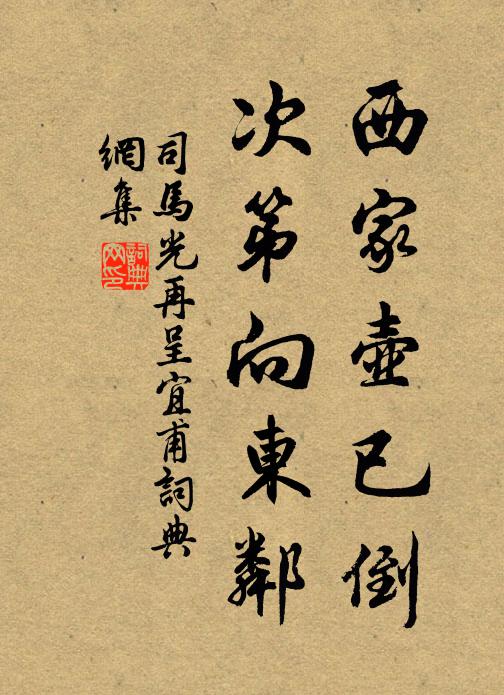 西家壺已倒
次第向東鄰
司馬光再呈宜甫詞典
網集
詞典
网印